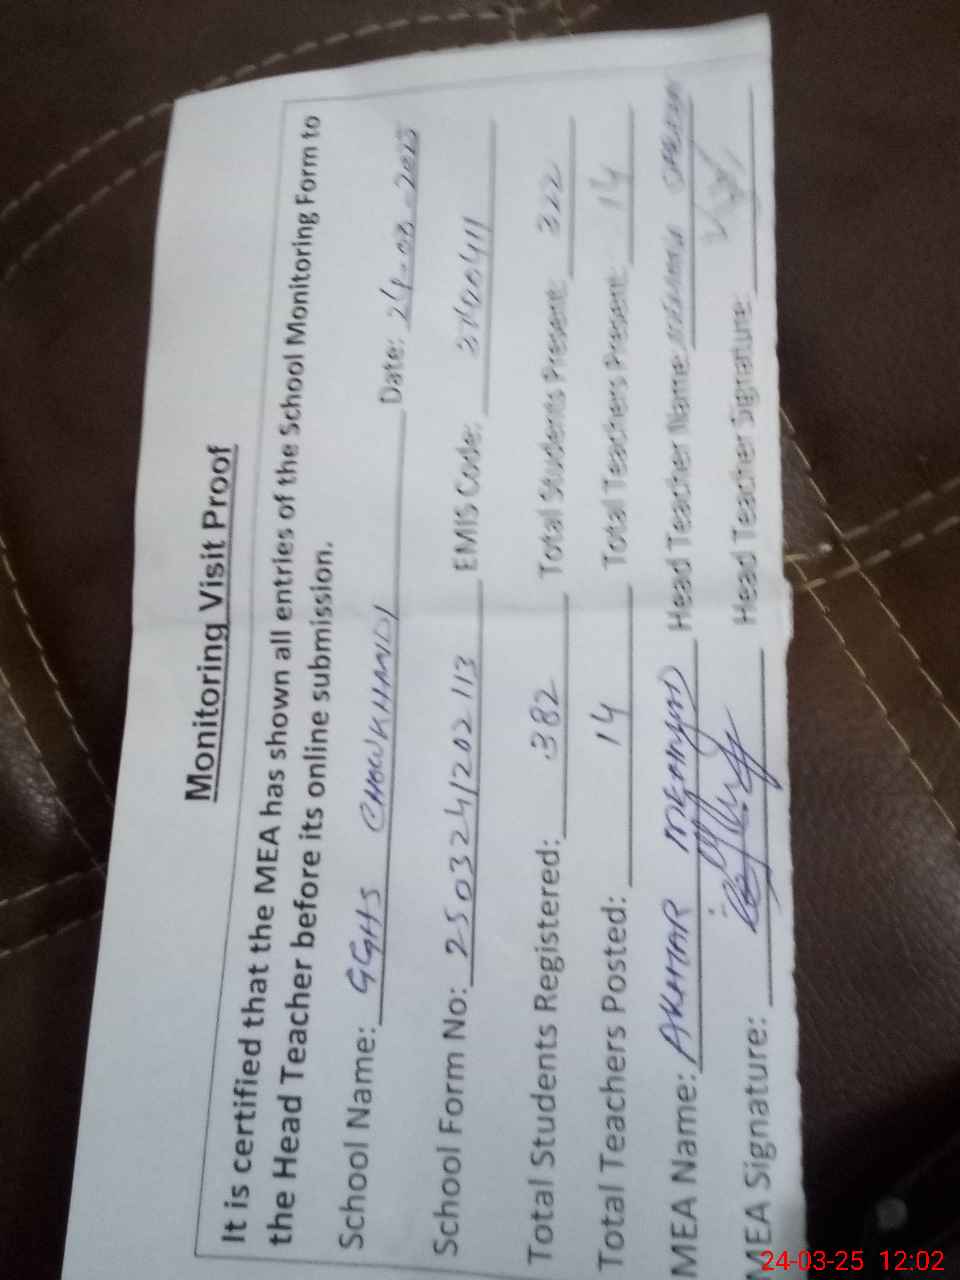 Monitoring Visit Proof
It is certified that the MEA has shown all entries of the School Monitoring Form to
the Head Teacher before its online submission.
School Name: GGHS CHOWKHANDI Date: 24-03-2025
School Form No: 2503241202113 EMIS Code:
Total Students Registered: 382 Total Students Present: 322
Total Teachers Posted: 14 Total Teachers Present: 14
MEA Name: AKHTAR Head Teacher Name:
MEA Signature: Head Teacher Signature:
24-03-25 12:02